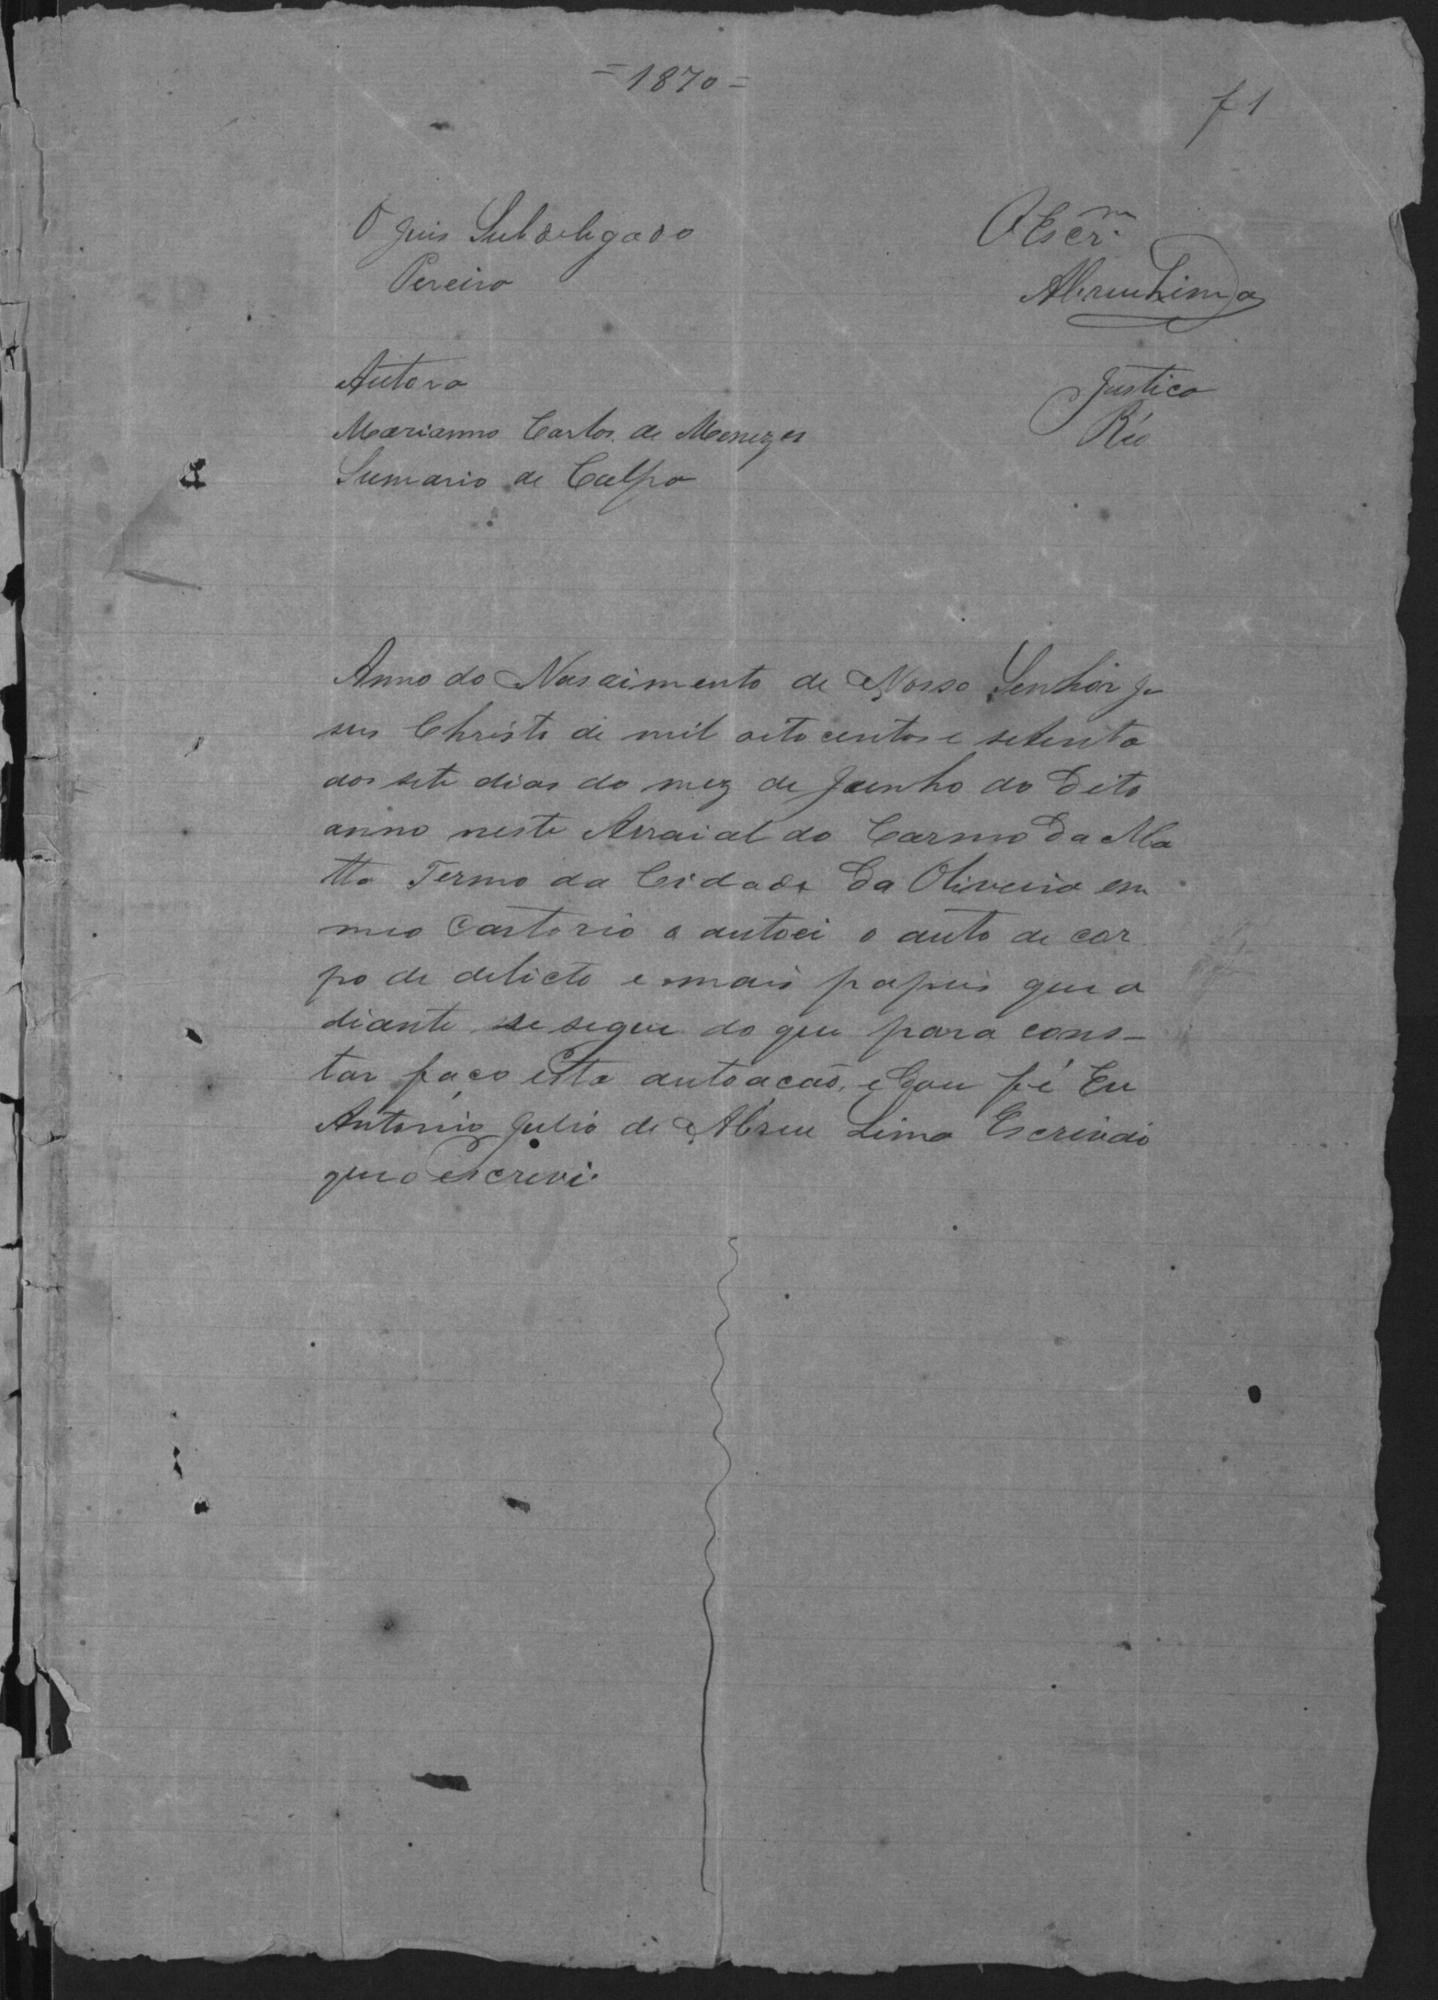 =1870=
f 1
O Juis Subdelegado
Pereira
O Escr.m
Abreu Lima
Autora
Justiça
Marianno Carlos de Menezes
Réo
Sumario de Culpa
Anno do Nascimento de Nosso Senhor Je
sus Christo de mil oito centos e setenta
aos sete dias do mez de Junho do dito
anno neste Arraial do Carmo da Ma
tta Termo da Cidade da Oliveira em
meo Cartorio a autoei o auto de cor
po de delicto e mais papeis que a
diante se segue do que para cons-
tar faço esta autoacão, e dou fé Eu
Antonio Julio de Abreu Lima Escrivão
que o escrevi.